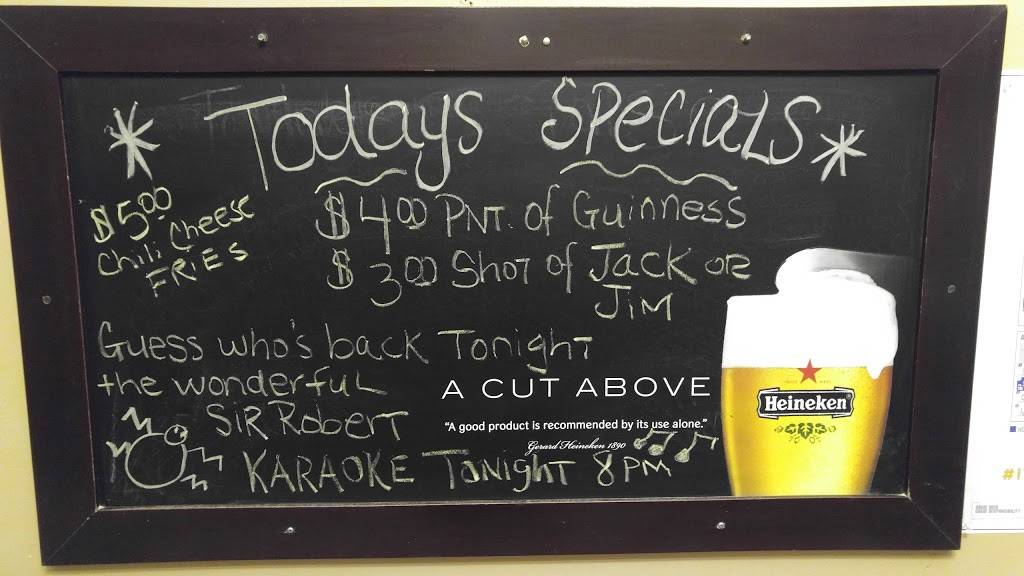 Todays Specials
$5.00
Chili Cheese
FRIES
$4.00 PNT. of Guinness
$3.00 Shot of Jack or
Jim
Guess who's back Tonight
the wonderful
Sir Robert
KARAOKE Tanight 8PM
A CUT ABOVE
"A good product is recommended by its use alone."
Gerard Heineken 1890
Heineken
#1